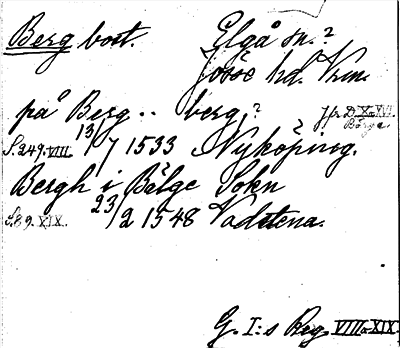 Berg bost. Elgå sn.?
Jösse hd. Vrm.
på Berg.. berg? Jfr D. X o. XVI.
Bärga.
S. 249. VIII 13/7 1533 Nyköping.
Bergh i Bälge Sokn
S. 89. XIX. 23/2 1548 Vadstena.
G. I:s Reg. VIII o. XIX.